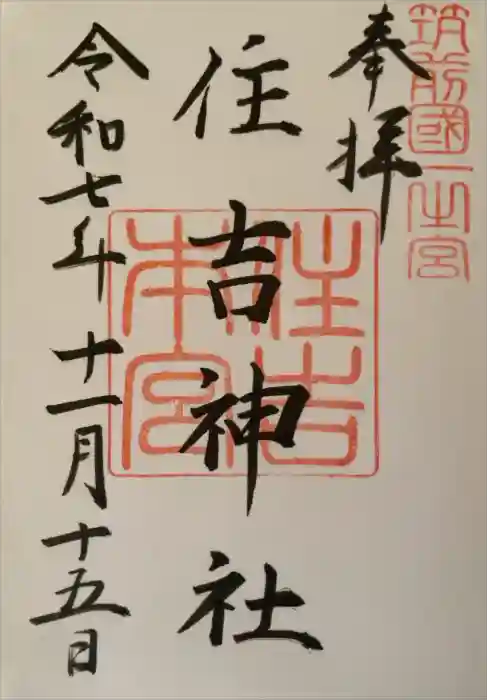 筑前國一之宮
奉拝
住吉神社
住吉
本宮
令和七年十一月十五日